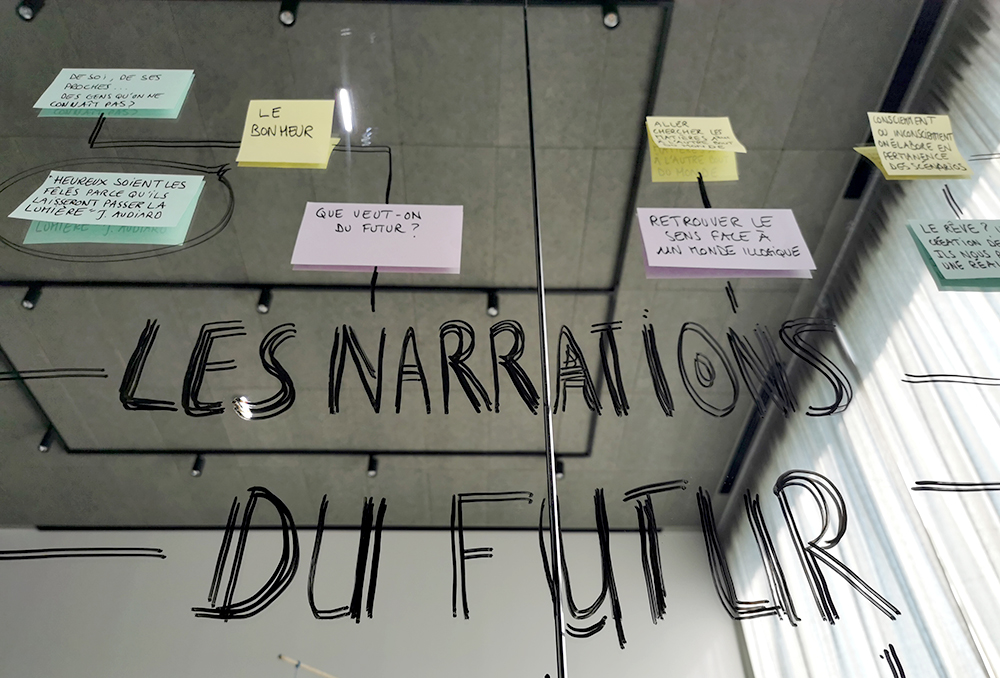 DE SOI, DE SES
PROCHES...
DES GENS QU'ON NE
CONNAÎT PAS?
LE
BONHEUR
"HEUREUX SOIENT LES
FÊLÉS PARCE QU'ILS
LAISSERONT PASSER LA
LUMIÈRE" J. AUDIARD
QUE VEUT-ON
DU FUTUR?
ALLER
CHERCHER LES
MATIÈRES
À L'AUTRE BOUT
DU MONDE
RETROUVER LE
SENS FACE À
UN MONDE ILLOGIQUE
CONSCIEMMENT
OU INCONSCIEMMENT
ON ÉLABORE EN
PERMANENCE
DES SCÉNARIOS
LE RÊVE?
CRÉATION DE
ILS NOUS
UNE
LES NARRATIONS
DU FUTUR